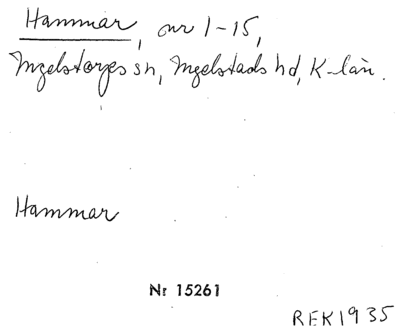 Hammar, nr 1-15,
Ingelstorps sn, Ingelstads hd, K-län.
Hammar
Nr 15261
REK1935